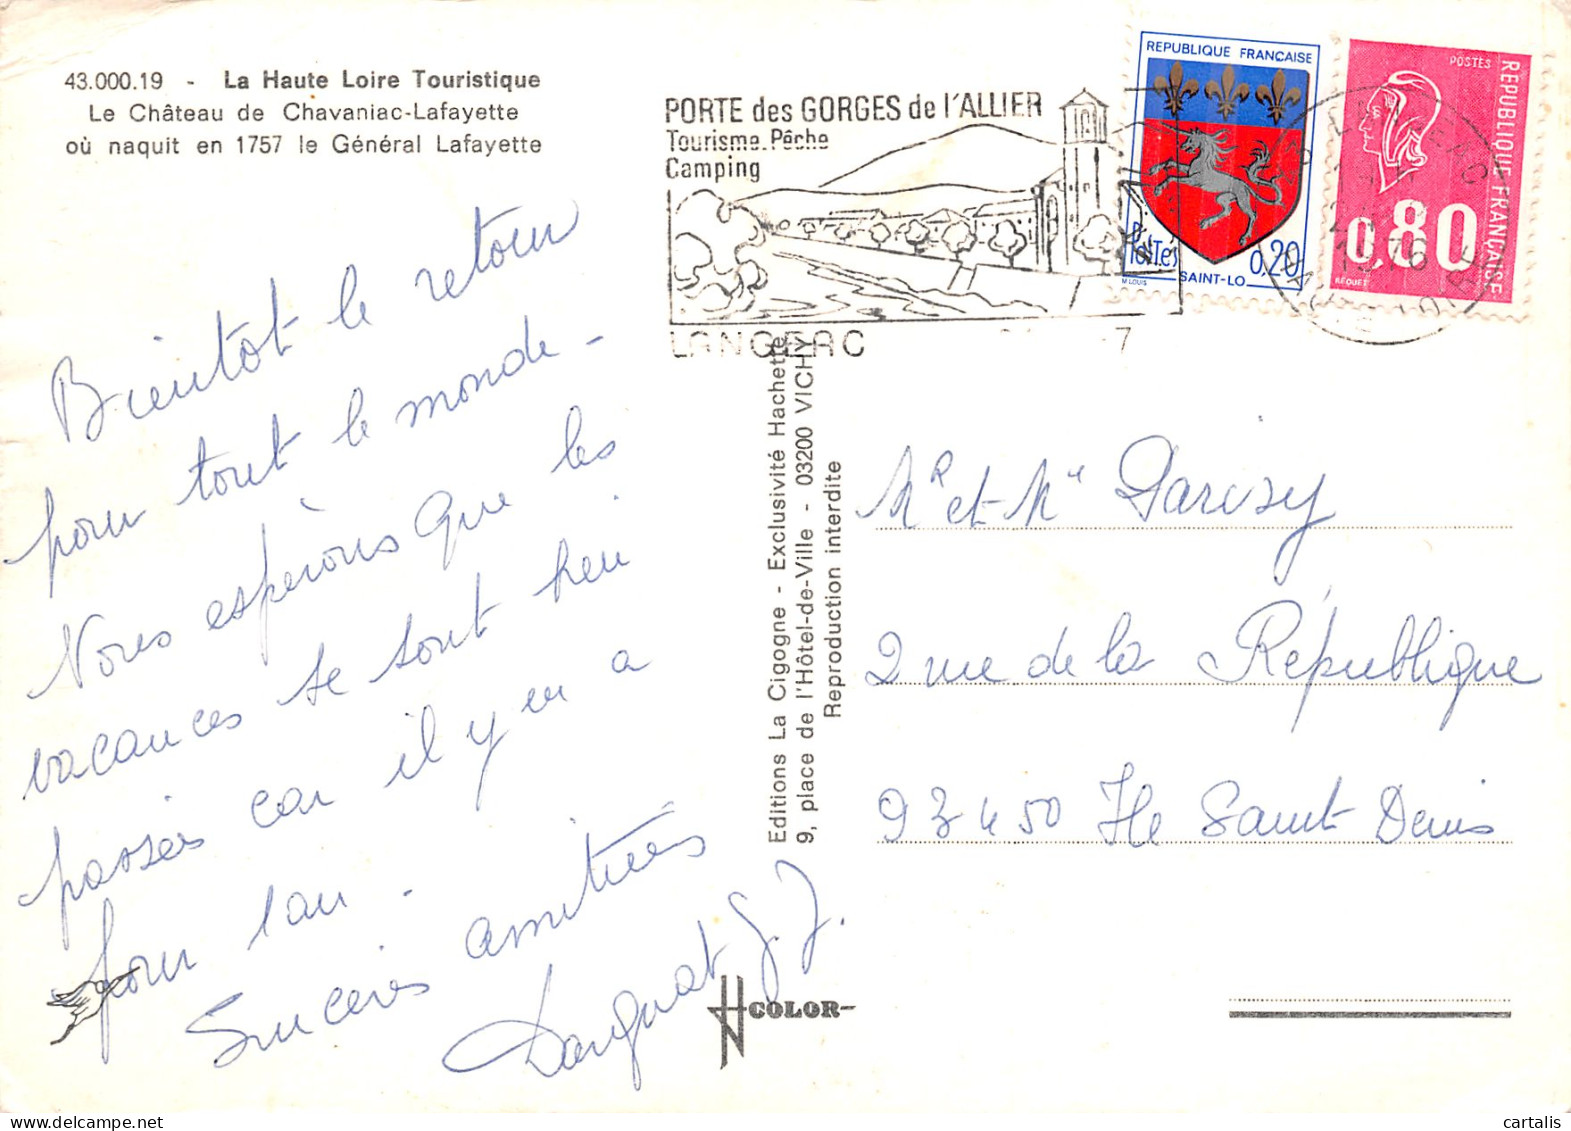 43.000.19 - La Haute Loire Touristique
Le Château de Chavaniac-Lafayette
où naquit en 1757 le Général Lafayette
PORTE des GORGES de l'ALLIER
Tourisme. Pêche
Camping
LANGEAC
REPUBLIQUE FRANÇAISE
Postes
0,20
SAINT-LO
M LOUIS
POSTES
REPUBLIQUE FRANÇAISE
0,80
BEQUET
1976
Bientôt le retour
pour tout le monde -
Nous espérons que les
vacances se sont bien
passées car il y en a
pour 1 an.
Sincères amitiées
J. J.
Editions La Cigogne - Exclusivité Hachette
9, place de l'Hôtel-de-Ville - 03200 VICHY
Reproduction interdite
COLOR
Mr et Me Parisy
2 rue de la République
93450 Ile Saint Denis
cartalis